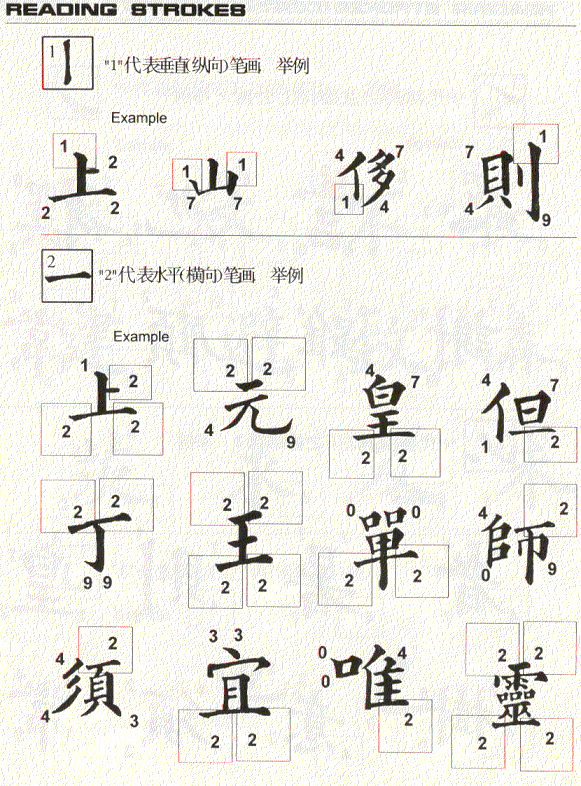 READING STROKES
1 丨 "1"代表垂直(纵向)笔画 举例
Example
1 2 1 1 4 7 7 1
上 山 侈 則
2 2 7 7 1 4 4 9
2 一 "2"代表水平(横向)笔画 举例
Example
1 2 2 2 4 7 4 7
上 元 皇 但
2 2 4 9 2 2 1 2
2 2 2 2 0 0 4 2
丁 王 單 師
9 9 2 2 2 2 0 9
4 2 3 3 0 4 2 2
須 宜 唯 靈
4 3 2 2 0 2 2 2